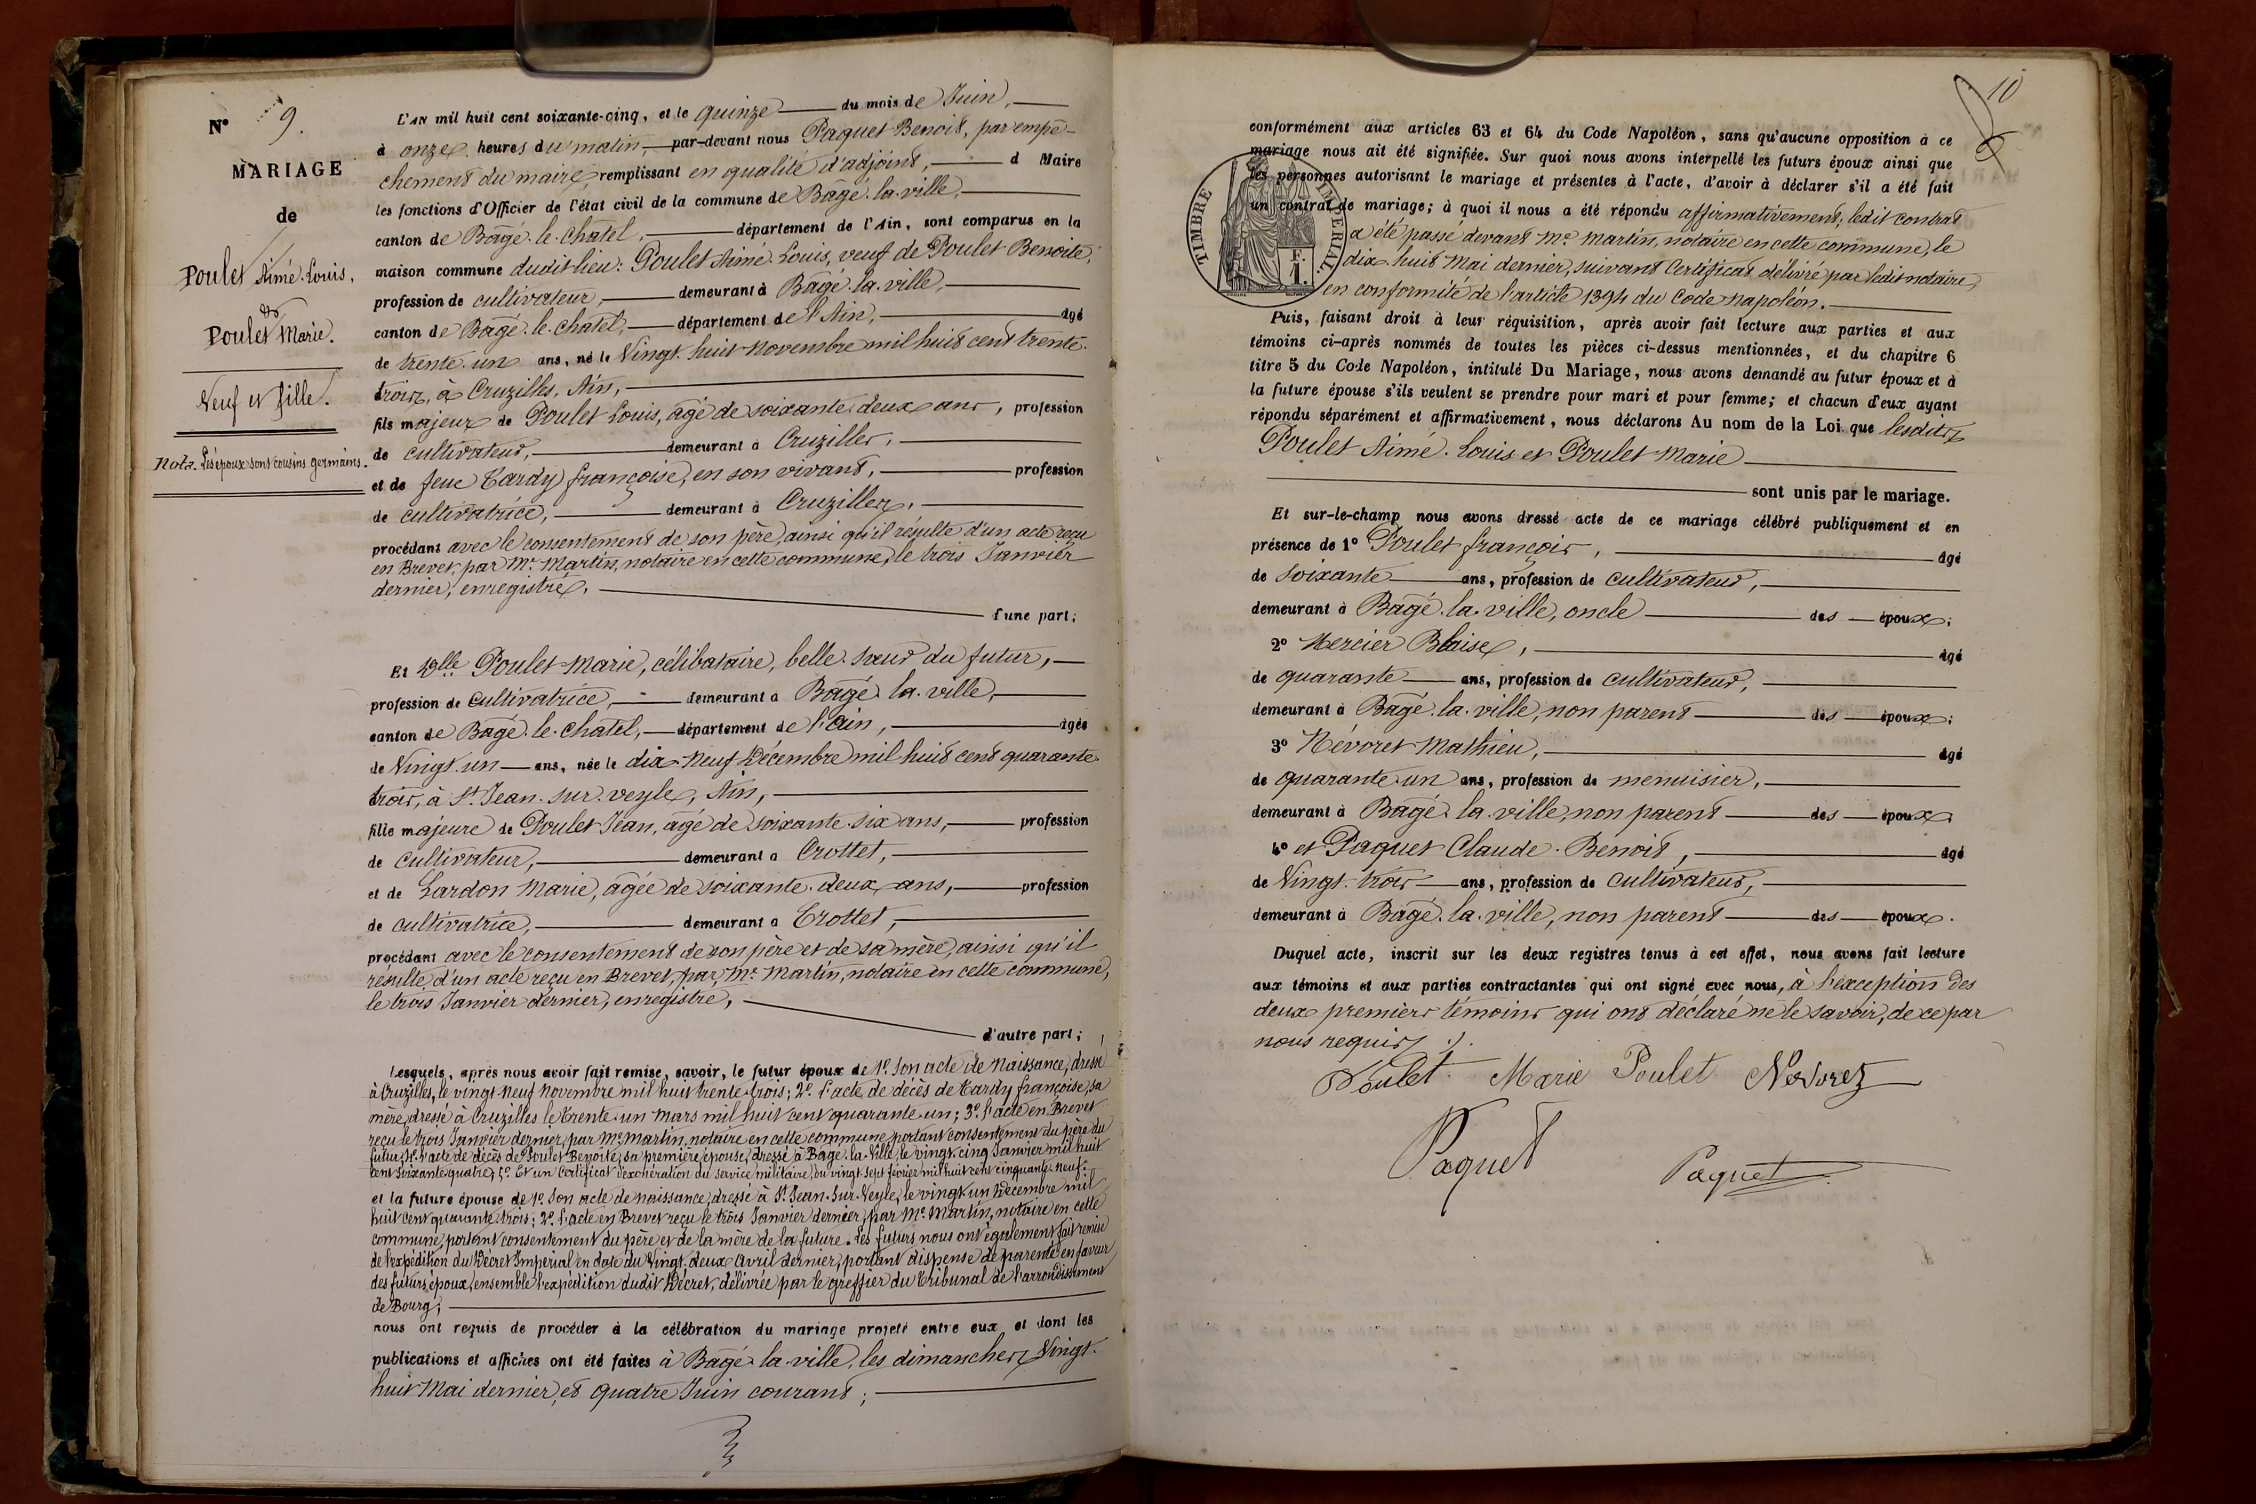 N° 9.
MARIAGE
de
Poulet Aimé-Louis,
et
Poulet Marie.
Veuf et fille.
Nota. Les époux sont cousins germains.
L'AN mil huit cent soixante-cinq, et le quinze du mois de Juin,
à onze heures du matin, par-devant nous Paquet Benoit, par empê-
chement du maire, remplissant en qualité d'adjoint, d Maire
les fonctions d'Officier de l'état civil de la commune de Bâgé-la-ville,
canton de Bâgé-le-Chatel, département de l'Ain, sont comparus en la
maison commune dudit lieu: Poulet Aimé-Louis, veuf de Poulet Benoite,
profession de cultivateur, demeurant à Bâgé-la-ville,
canton de Bâgé-le-chatel, département de l'Ain, âgé
de trente-un ans, né le Vingt-huit novembre mil huit cent trente-
trois, à Cruzilles, Ain,
fils majeur de Poulet Louis, âgé de soixante-deux ans, profession
de cultivateur, demeurant à Cruzilles,
et de feue Tardy françoise, en son vivant, profession
de cultivatrice, demeurant à Cruzilles,
procédant avec le consentement de son père, ainsi qu'il résulte d'un acte reçu
en Brevet, par Me Martin, notaire en cette commune, le trois Janvier
dernier, enregistré,
d'une part;
Et Dlle Poulet Marie, célibataire, belle-sœur du futur,
profession de cultivatrice, demeurant à Bâgé-la-ville,
canton de Bâgé-le-chatel, département de l'ain, âgée
de Vingt-un ans, née le dix-Neuf Décembre mil huit cent quarante-
trois, à St Jean-sur-veyle, Ain,
fille majeure de Poulet Jean, âgé de soixante-six ans, profession
de cultivateur, demeurant à Crottet,
et de Lardon Marie, âgée de soixante-deux ans, profession
de cultivatrice, demeurant à Crottet,
procédant avec le consentement de son père et de sa mère, ainsi qu'il
résulte d'un acte reçu en Brevet, par Me Martin, notaire en cette commune,
le trois Janvier dernier, enregistré,
d'autre part;
Lesquels, après nous avoir fait remise, savoir, le futur époux de 1° Son acte de Naissance, dressé
à Cruzilles, le vingt-neuf Novembre mil huit trente-trois; 2° l'acte de décès de Tardy françoise, sa
mère, dressé à Cruzilles le trente-un Mars mil huit cent quarante-un; 3° l'acte en Brevet
reçu le trois Janvier dernier, par Me Martin, notaire en cette commune, portant consentement du père du
futur; 4° l'acte de décès de Poulet Benoite, sa première épouse, dressé à Bâgé-la-Ville, le vingt-cinq Janvier mil huit
cent soixante-quatre; 5° Et un certificat d'exonération du service militaire, du vingt-sept février mil huit cent cinquante-neuf:
et la future épouse de 1° Son acte de naissance, dressé à St Jean-Sur-Veyle, le vingt-un Décembre mil
huit cent quarante-trois; 2° l'acte en Brevet reçu le trois Janvier dernier, par Me Martin, notaire en cette
commune, portant consentement du père et de la mère de la future. Les futurs nous ont également fait remise
de l'expédition du Décret Impérial en date du Vingt-deux avril dernier, portant dispense de parenté en faveur
des futurs époux, ensemble l'expédition dudit Décret, délivrée par le greffier du Tribunal de l'arrondissement
de Bourg;
nous ont requis de procéder à la célébration du mariage projeté entre eux et dont les
publications et affiches ont été faites à Bâgé-la-ville, les dimanches Vingt-
huit Mai dernier, et quatre Juin courant;
10
conformément aux articles 63 et 64 du Code Napoléon, sans qu'aucune opposition à ce
mariage nous ait été signifiée. Sur quoi nous avons interpellé les futurs époux ainsi que
les personnes autorisant le mariage et présentes à l'acte, d'avoir à déclarer s'il a été fait
un contrat de mariage; à quoi il nous a été répondu affirmativement; ledit contrat
a été passé devant Me Martin, notaire en cette commune, le
dix-huit Mai dernier, suivant Certificat délivré par ledit notaire,
en conformité de l'article 1394 du Code Napoléon.
TIMBRE IMPERIAL
F.
1.
Puis, faisant droit à leur réquisition, après avoir fait lecture aux parties et aux
témoins ci-après nommés de toutes les pièces ci-dessus mentionnées, et du chapitre 6
titre 5 du Code Napoléon, intitulé Du Mariage, nous avons demandé au futur époux et à
la future épouse s'ils veulent se prendre pour mari et pour femme; et chacun d'eux ayant
répondu séparément et affirmativement, nous déclarons Au nom de la Loi que lesdits
Poulet Aimé-Louis et Poulet Marie
sont unis par le mariage.
Et sur-le-champ nous avons dressé acte de ce mariage célébré publiquement et en
présence de 1° Poulet françois, âgé
de soixante ans, profession de cultivateur,
demeurant à Bâgé-la-ville, oncle des époux;
2° Mercier Blaise, âgé
de quarante ans, profession de cultivateur,
demeurant à Bâgé-la-ville, non parent des époux;
3° Névoret Mathieu, âgé
de quarante-un ans, profession de menuisier,
demeurant à Bâgé-la-ville, non parent des époux
4° et Paquet Claude-Benoit, âgé
de Vingt-trois ans, profession de cultivateur,
demeurant à Bâgé-la-ville, non parent des époux.
Duquel acte, inscrit sur les deux registres tenus à cet effet, nous avons fait lecture
aux témoins et aux parties contractantes qui ont signé avec nous, à l'exception des
deux premiers témoins qui ont déclaré ne le savoir, de ce par
nous requis ./.
Poulet Marie Poulet Nevorez
Paquet Paquet